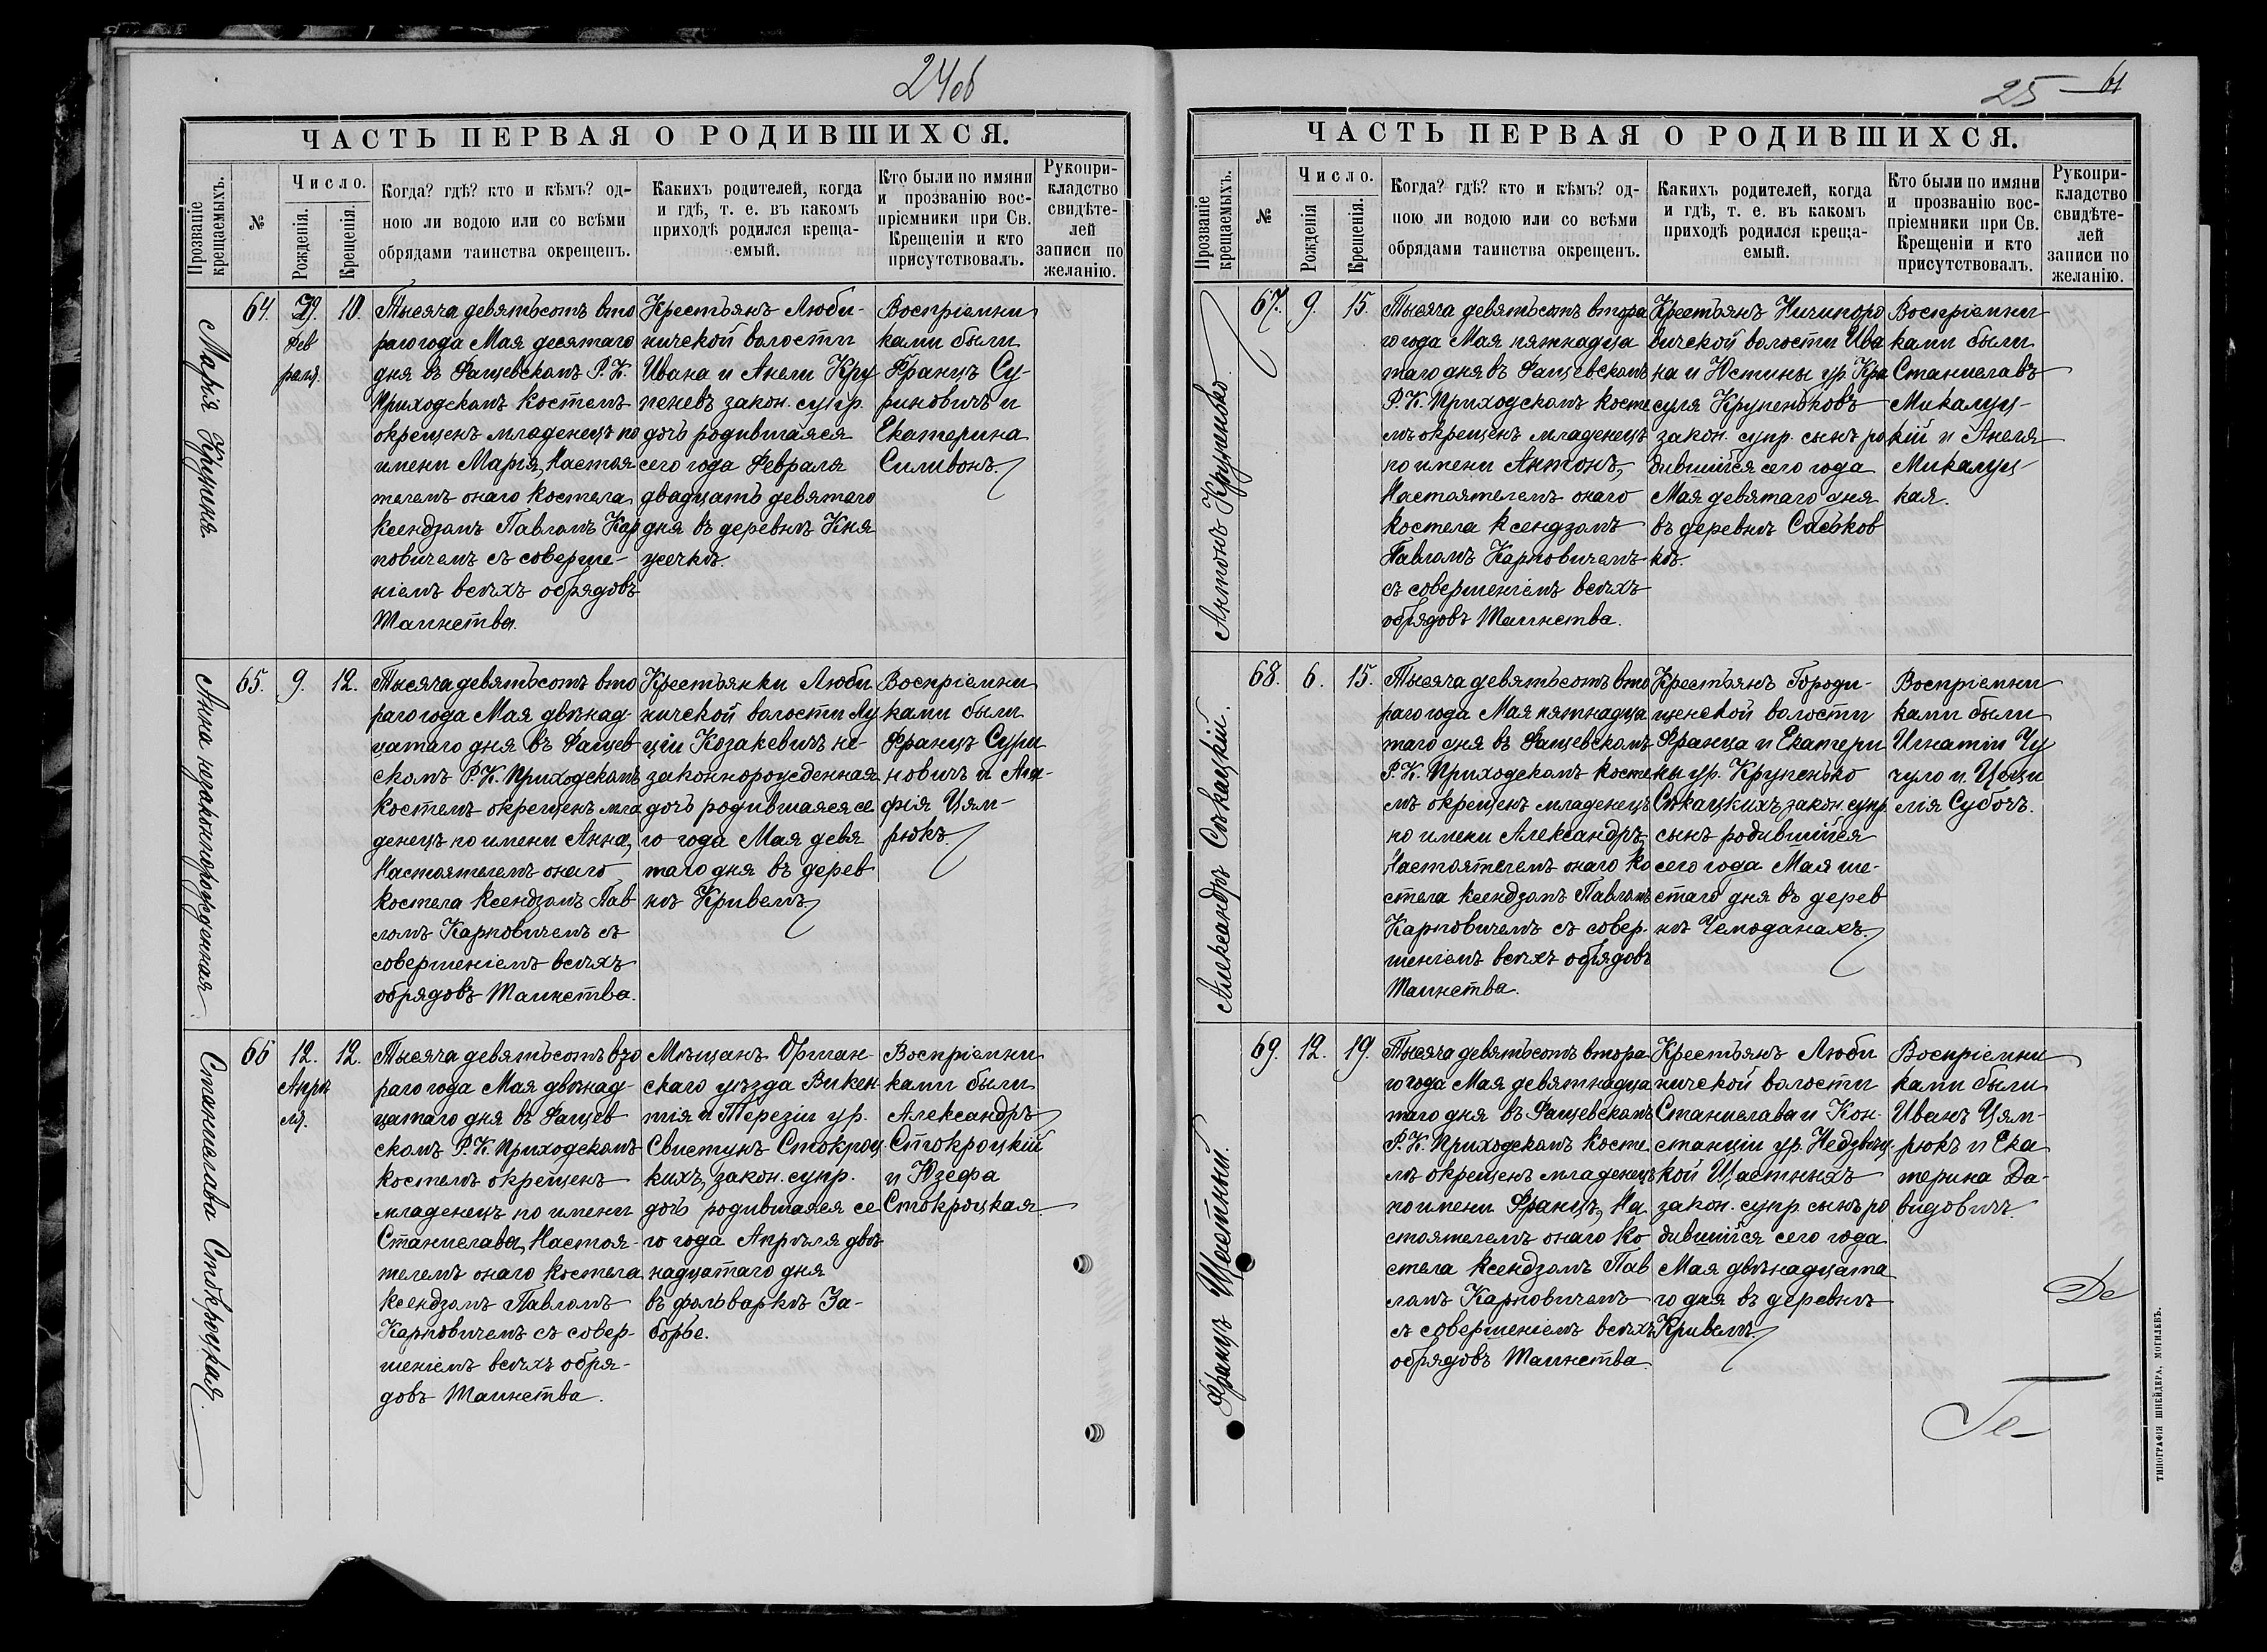 24об
ЧАСТЬ ПЕРВАЯ О РОДИВШИХСЯ.
Прозваніе крещаемыхъ.
№
Число.
Рожденія.
Крещенія.
Когда? гдѣ? кто и кѣмъ? од-
ною ли водою или со всѣми
обрядами таинства окрещенъ.
Какихъ родителей, когда
и гдѣ, т. е. въ какомъ
приходѣ родился креща-
емый.
Кто были по имяни
и прозванію вос-
пріемники при Св.
Крещеніи и кто
присутствовалъ.
Рукопри-
кладство
свидѣте-
лей
записи по
желанію.
Марія Крупеня.
64.
29.
Фев
раля.
10.
Тысяча девятьсотъ вто
раго года Мая десятаго
дня въ Фащевскомъ Р. К.
Приходскомъ костелѣ
окрещенъ младенецъ по
имени Марія, Настоя
телемъ онаго костела
ксендзомъ Павломъ Кар
повичемъ съ соверше-
ніемъ всѣхъ обрядовъ
Таинства.
Крестьянъ Люби-
ничской волости
Ивана и Анели Кру
пеневъ закон. супр.
дочь родившаяся
сего года Февраля
двадцать девятаго
дня въ деревнѣ Кня
жечкѣ.
Воспріемни
ками были
Францъ Су-
риновичъ и
Екатерина
Силивонъ.
Анна незаконнорожденная
65.
9.
12.
Тысяча девятьсотъ вто
раго года Мая двѣнад-
цатаго дня въ Фащев
скомъ Р. К. Приходскомъ
костелѣ окрещенъ мла
денецъ по имени Анна,
Настоятелемъ онаго
костела ксендзомъ Пав
ломъ Карповичемъ съ
совершеніемъ всѣхъ
обрядовъ Таинства.
Крестьянки Люби
ничской волости Лу
ціи Козакевичъ не-
законнорожденная
дочь родившаяся се
го года Мая девя
таго дня въ дерев
нѣ Кривелѣ
Воспріемни
ками были
Францъ Сури
новичъ и Ага-
фія Цям-
рюкъ.
Станислава Стокроцкая.
66
12.
Апрѣ
ля.
12.
Тысяча девятьсотъ вто
раго года Мая двѣнад-
цатаго дня въ Фащев
скомъ Р. К. Приходскомъ
костелѣ окрещенъ
младенецъ по имени
Станислава, Настоя-
телемъ онаго костела
ксендзомъ Павломъ
Карповичемъ съ совер-
шеніемъ всѣхъ обря-
довъ Таинства.
Мѣщанъ Оршан-
скаго уѣзда Викен
тія и Терезіи ур.
Свистунъ Стокроц
кихъ, закон. супр.
дочь родившаяся се
го года Апрѣля двѣ
надцатаго дня
въ фольваркѣ За-
борье.
Воспріемни
ками были
Александръ
Стокроцкій
и Юзефа
Стокроцкая.
25
61
ЧАСТЬ ПЕРВАЯ О РОДИВШИХСЯ.
Прозваніе крещаемыхъ.
№
Число.
Рожденія
Крещенія.
Когда? гдѣ? кто и кѣмъ? од-
ною ли водою или со всѣми
обрядами таинства окрещенъ.
Какихъ родителей, когда
и гдѣ, т. е. въ какомъ
приходѣ родился креща-
емый.
Кто были по имяни
и прозванію вос-
пріемники при Св.
Крещеніи и кто
присутствовалъ.
Рукопри-
кладство
свидѣте-
лей
записи по
желанію.
Антонъ Крупенько
67.
9.
15.
Тысяча девятьсотъ втора
го года Мая пятнадца
таго дня въ Фащевскомъ
Р. К. Приходскомъ косте
лѣ окрещенъ младенецъ
по имени Антонъ,
Настоятелемъ онаго
костела ксендзомъ
Павломъ Карповичемъ
съ совершеніемъ всѣхъ
обрядовъ Таинства.
Крестьянъ Ничипоро
вичской волости Ива
на и Юстины ур. Кра
суля Крупеньковъ
закон. супр. сынъ ро
дившійся сего года
Мая девятаго дня
въ деревнѣ Савков
кѣ.
Воспріемни
ками были
Станиславъ
Микалуц-
кій и Анеля
Микалуц-
кая.
Александръ Сѣкацкій.
68.
6.
15.
Тысяча девятьсотъ вто
раго года Мая пятнадца
таго дня въ Фащевскомъ
Р. К. Приходскомъ косте
лѣ окрещенъ младенецъ
по имени Александръ,
Настоятелемъ онаго ко
стела ксендзомъ Павломъ
Карповичемъ съ совер-
шеніемъ всѣхъ обрядовъ
Таинства.
Крестьянъ Городи-
щенской волости
Франца и Екатери
ны ур. Крупенько
Сѣкацкихъ, закон. супр
сынъ родившійся
сего года Мая ше-
стаго дня въ дерев
нѣ Чемоданахъ.
Воспріемни
ками были
Игнатій Чу
чуло и Цеци
лія Суботь.
Францъ Щастный.
69.
12.
19.
Тысяча девятьсотъ втора
го года Мая девятнадца
таго дня въ Фащевскомъ
Р. К. Приходскомъ косте
лѣ окрещенъ младенецъ
по имени Францъ, На
стоятелемъ онаго ко
стела ксендзомъ Пав
ломъ Карповичемъ
съ совершеніемъ всѣхъ
обрядовъ Таинства
Крестьянъ Люби
ничской волости
Станислава и Кон-
станціи ур. Недзвец-
кой Щастныхъ
закон. супр. сынъ ро
дившійся сего года
Мая двѣнадцата
го дня въ деревнѣ
Кривелѣ.
Воспріемни
ками были
Иванъ Цям-
рюкъ и Ека
терина Да-
видовичъ.
ТИПОГРАФІЯ ШНЕЙДЕРА, МОГИЛЕВЪ.